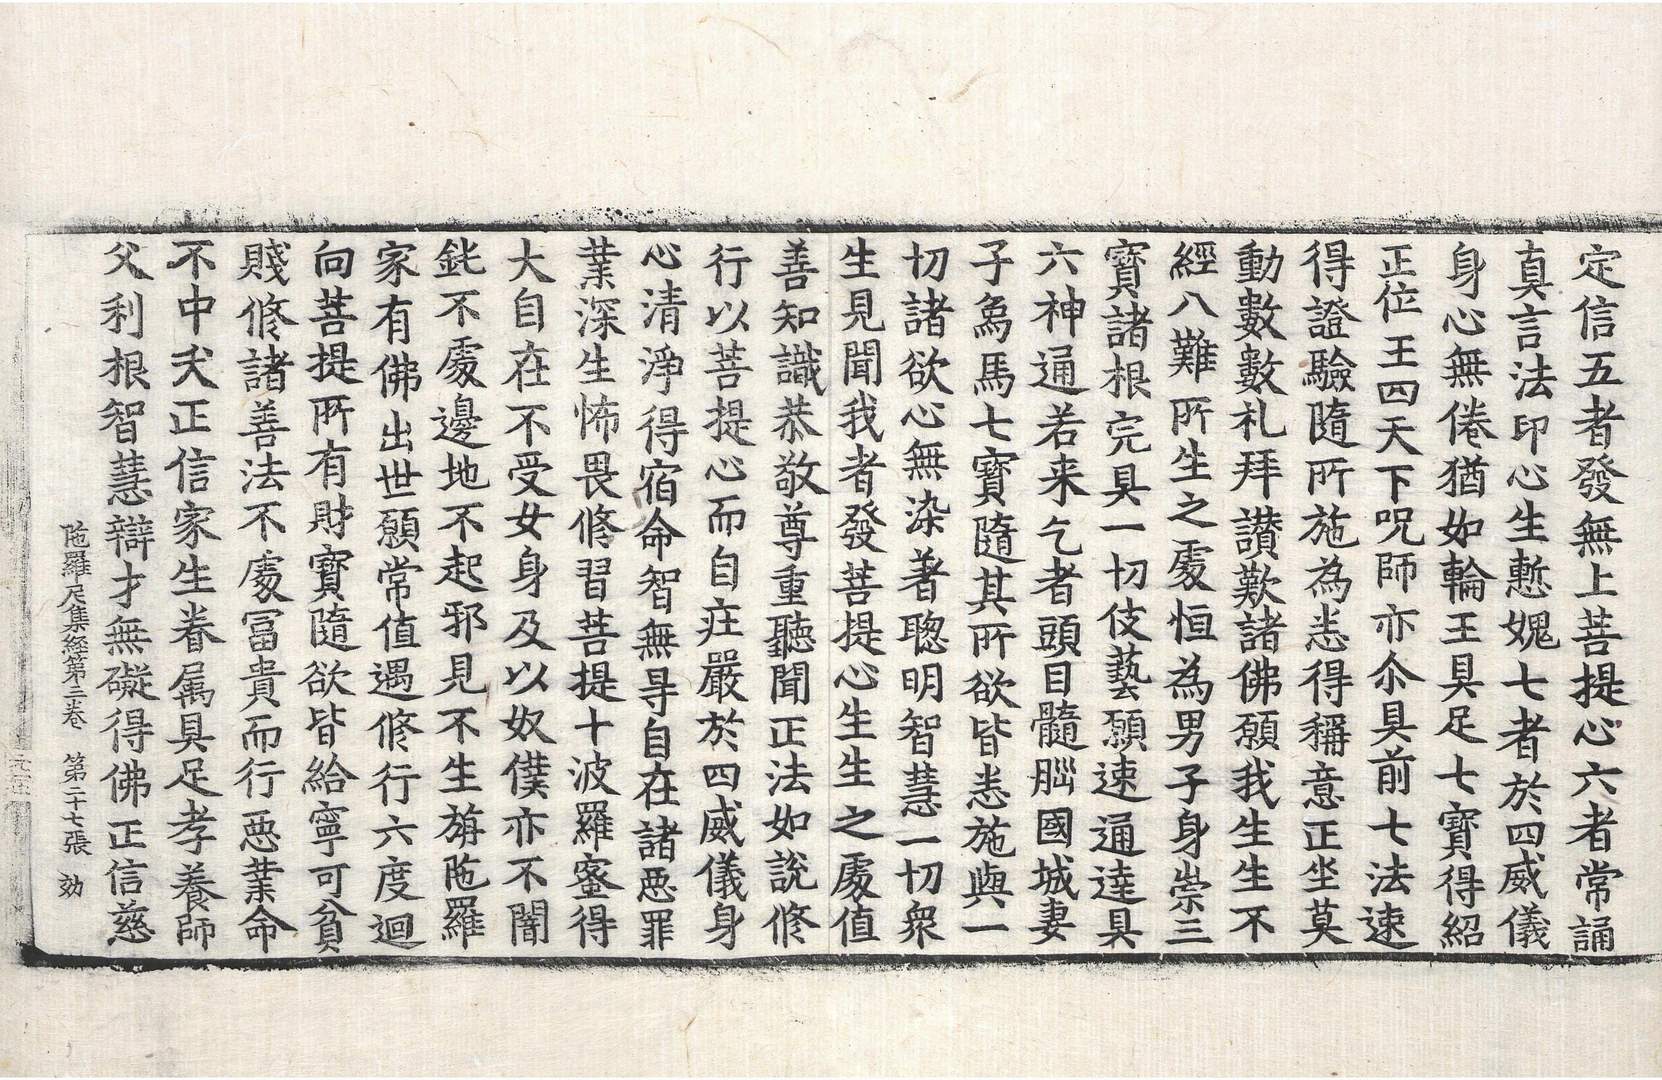 定信五者發無上菩提心六者常誦
真言法印心生慙媿七者於四威儀
身心無倦猶如輪王具足七寶得紹
正位王四天下呪師亦尒具前七法速
得證驗隨所施為悉得稱意正坐莫
動數數礼拜讃歎諸佛願我生生不
經八難所生之處恒為男子身崇三
寶諸根完具一切伎藝願速通達具
六神通若来乞者頭目髓𦛁國城妻
子為馬七寶隨其所欲皆悉施與一
切諸欲心無染著聦明智慧一切衆
生見聞我者發菩提心生生之處值
善知識恭敬尊重聽聞正法如說修
行以菩提心而自庄嚴於四威儀身
心清淨得宿命智無㝵自在諸惡罪
業深生怖畏修習菩提十波羅蜜得
大自在不受女身及以奴僕亦不闇
鈋不處邊地不起邪見不生旃陁羅
家有佛出世願常值遇修行六度迴
向菩提所有財寶隨欲皆給寧可貧
賤修諸善法不處冨貴而行惡業命
不中夭正信家生眷属具足孝養師
父利根智慧辯才無礙得佛正信慈
陁羅尼集經第三卷 第二十七張 効